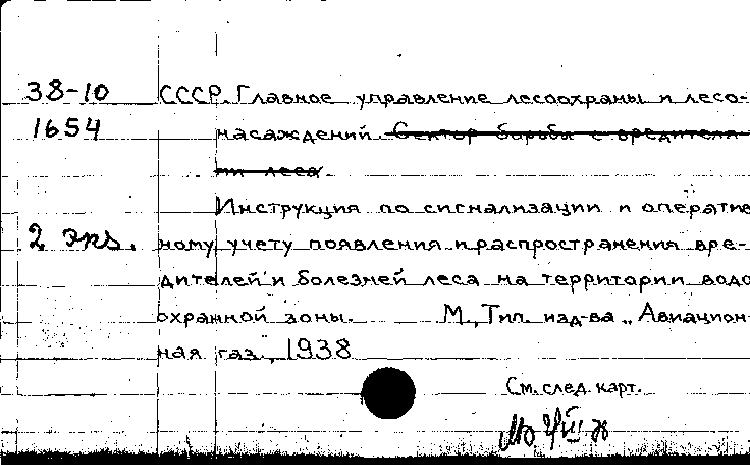 38-10 СССР. Главное управление лесоохраны и лесо-
1654 насаждений. Сектор борьбы с вредителя-
ми леса.
Инструкция по сигнализации и оператив
2 экз. ному учету появления и распространения вре-
дителей и болезней леса на территории водо
охранной зоны. М., Тип. изд-ва „Авиацион-
ная газ., 1938
См. след. карт.